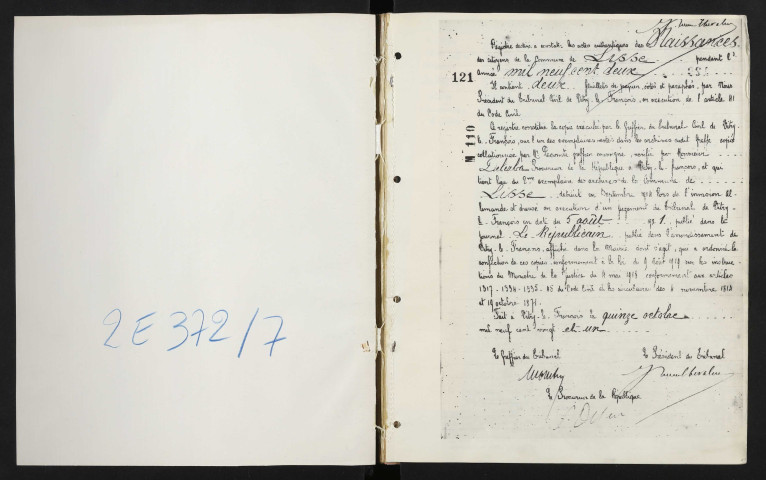 2 E 372/7
Registre destiné à contenir les actes authentiques des Naissances
des citoyens de la Commune de Lisse pendant l'
121
année mil neuf cent deux
Il contient deux feuillets de papier, cotés et paraphés, par Nous
Président du Tribunal Civil de Vitry-le-François, en exécution de l'article 41
du Code Civil
N° 110
Ce registre constitue la copie exécutée par le Greffier du Tribunal Civil de Vitry-
le-François, sur l'un des exemplaires restés dans les archives
collationnée par
Procureur de la République à Vitry-le-François, et qui
tient lieu du 2me exemplaire des archives de la Commune de
Lisse détruit en Septembre 1914 lors de l'invasion al-
lemande et dressé en exécution d'un jugement du Tribunal de Vitry-
le-François en date du 5 août 1921, publié dans le
journal Le Républicain publié dans l'arrondissement de
Vitry-le-François, affiché dans la Mairie dont s'agit, qui a ordonné la
confection de ces copies conformément à la loi du 9 Août 1919 sur les instruc-
tions du Ministre de la Justice du 4 mai 1918 conformément aux articles
1317-1334-1335-45 du Code Civil et les circulaires des 4 novembre 1814
et 19 octobre 1871.
Fait à Vitry-le-François le quinze octobre
mil neuf cent vingt et un
Le Greffier du Tribunal
Le Président du Tribunal
Le Procureur de la République